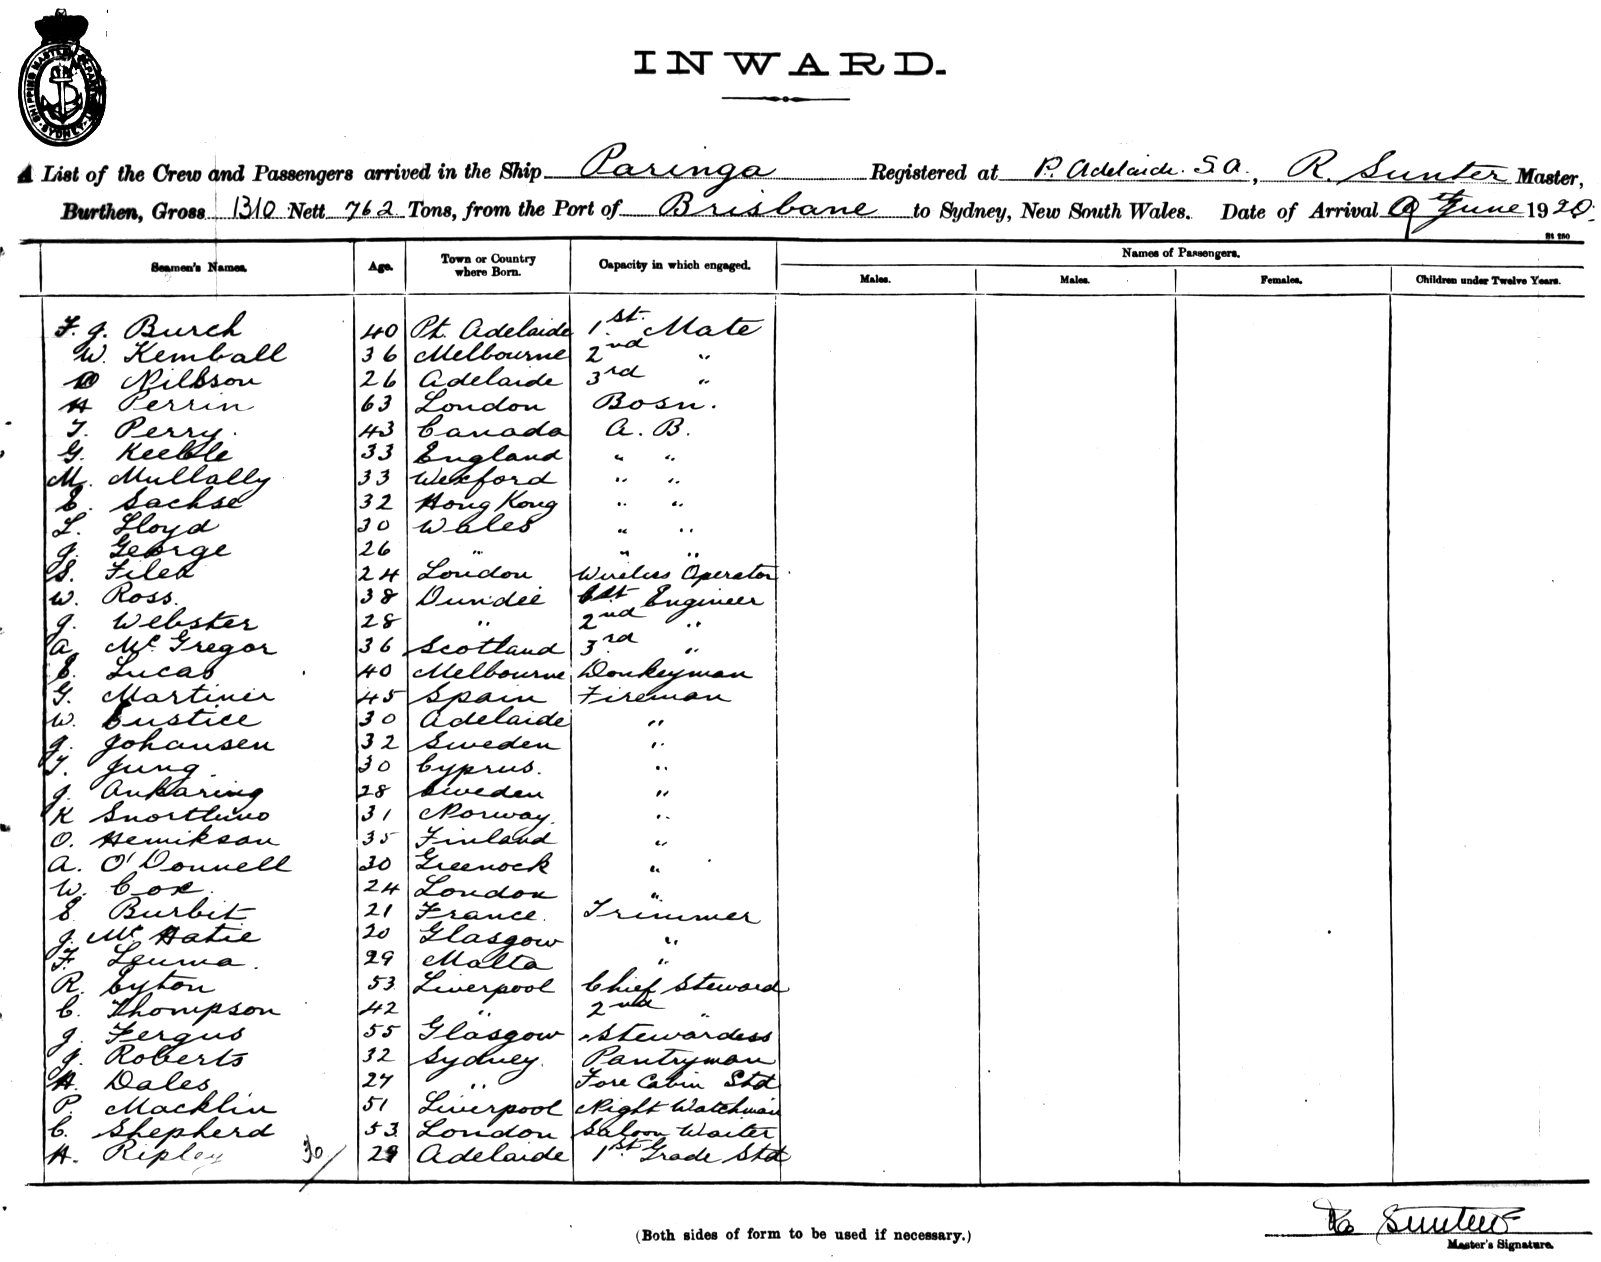 SHIPPING MASTER'S DEPARTMENT SYDNEY
INWARD.
A List of the Crew and Passengers arrived in the Ship Paringa Registered at P. Adelaide. S.A., R. Sunter Master,
Burthen, Gross 1310 Nett 762 Tons, from the Port of Brisbane to Sydney, New South Wales. Date of Arrival 9th June 1920.
St 250
Seamen's Names. Age. Town or Country where Born. Capacity in which engaged. Names of Passengers.
Males. Males. Females. Children under Twelve Years.
F. J. Burch 40 Pt. Adelaide 1st. Mate
W. Kemball 36 Melbourne 2nd "
Nilsson 26 Adelaide 3rd "
H Perrin 63 London Bosn.
T. Perry. 43 Canada A. B.
G. Keeble 33 England " "
M. Mullally 33 Wexford " "
E. Sachse 32 Hong Kong " "
L. Lloyd 30 Wales " "
J. George 26 " " "
S. Filed 24 London Wireless Operator
W. Ross. 38 Dundee 1st Engineer
J. Webster 28 " 2nd "
A. McGregor 36 Scotland 3rd "
E. Lucas 40 Melbourne Donkeyman
G. Martiner 45 Spain Fireman
W. Eustice 30 Adelaide "
J. Johansen 32 Sweden "
T. Jung. 30 Cyprus. "
J. Ankaring 28 Sweden "
K 31 Norway. "
O. Henrikson 35 Finland "
A. O'Donnell 30 Greenock "
W. Cox. 24 London "
E Burbit 21 France. Trimmer
J. Mc Hatie 20 Glasgow "
F. 29 Malta "
R. Eyton 53 Liverpool Chief Steward
C. Thompson 42 " 2nd "
J. Fergus 55 Glasgow Stewardess
J. Roberts 32 Sydney. Pantryman
H. Dales 27 " Fore Cabin Std
P. Macklin 51 Liverpool Night Watchman
C. Shepherd 53 London Saloon Waiter
H. Ripley 30/ 29 Adelaide 1st. Grade Std
(Both sides of form to be used if necessary.)
Sunter
Master's Signature.